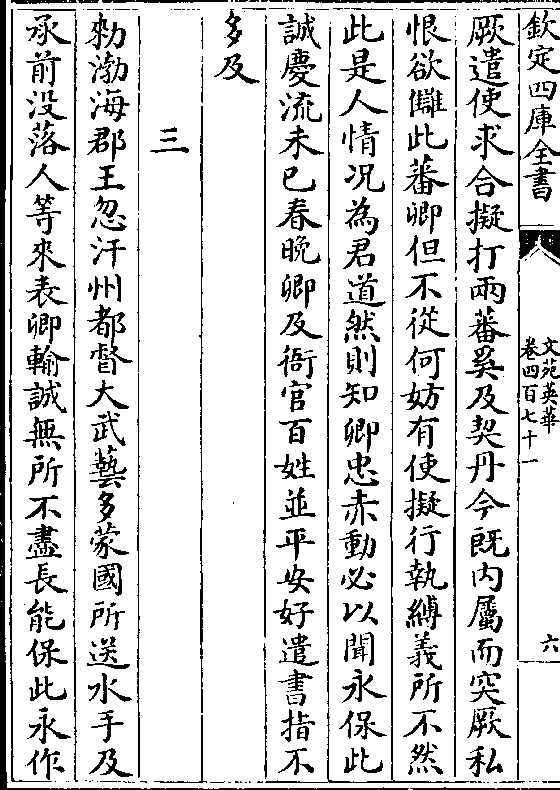 欽定四庫全書
文苑英華
卷四百七十一
六
厥遣使求合擬打兩蕃奚及契丹今既内屬而突厥私
恨欲讎此蕃卿但不從何妨有使擬行執縛義所不然
此是人情况為君道然則知卿忠赤動必以聞永保此
誠慶流未已春晚卿及衙官百姓並平安好遣書指不
多及
三
勅渤海郡王忽汗州都督大武藝多蒙國所送水手及
承前没落人等來表卿輸誠無所不盡長能保此永作